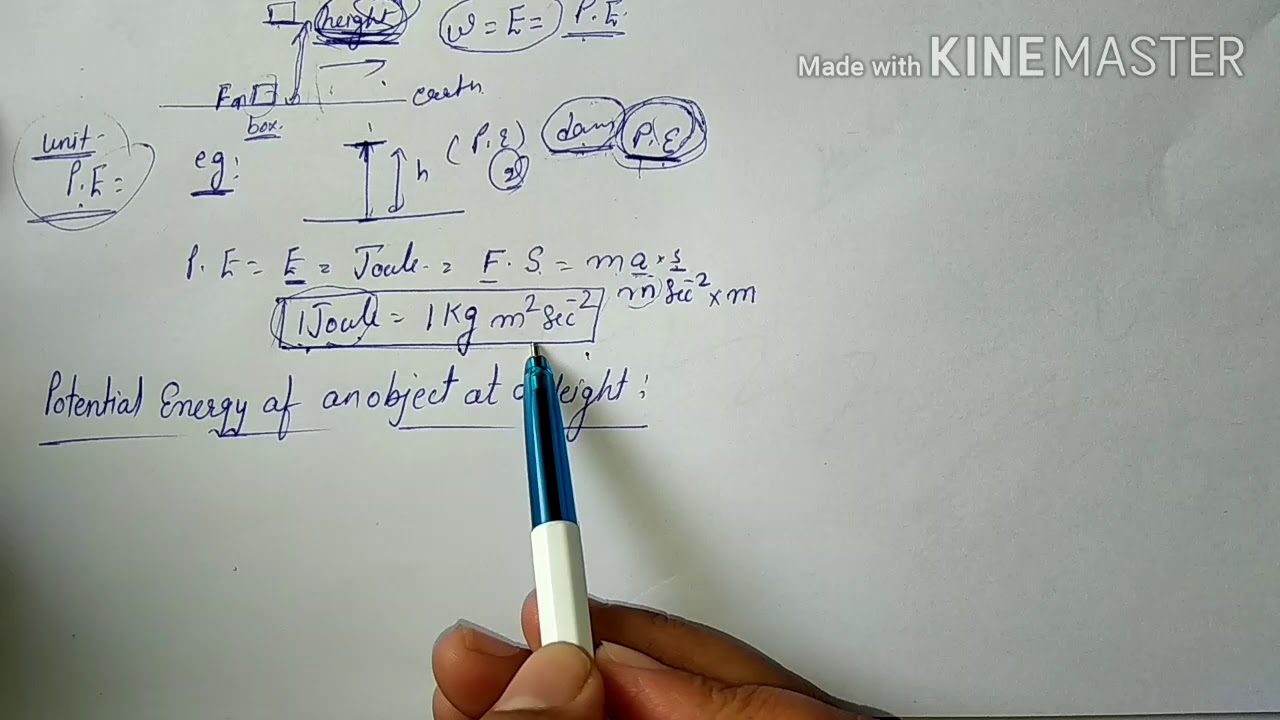 height W = E = P.E.
Made with KINEMASTER
earth
box.
unit- eg: h (P.E) dam P.E
P.E =
P.E = E = Joule = F.S = ma × s
m sec⁻² × m
1 Joule = 1 Kg m² sec⁻²
Potential Energy of an object at a Height: